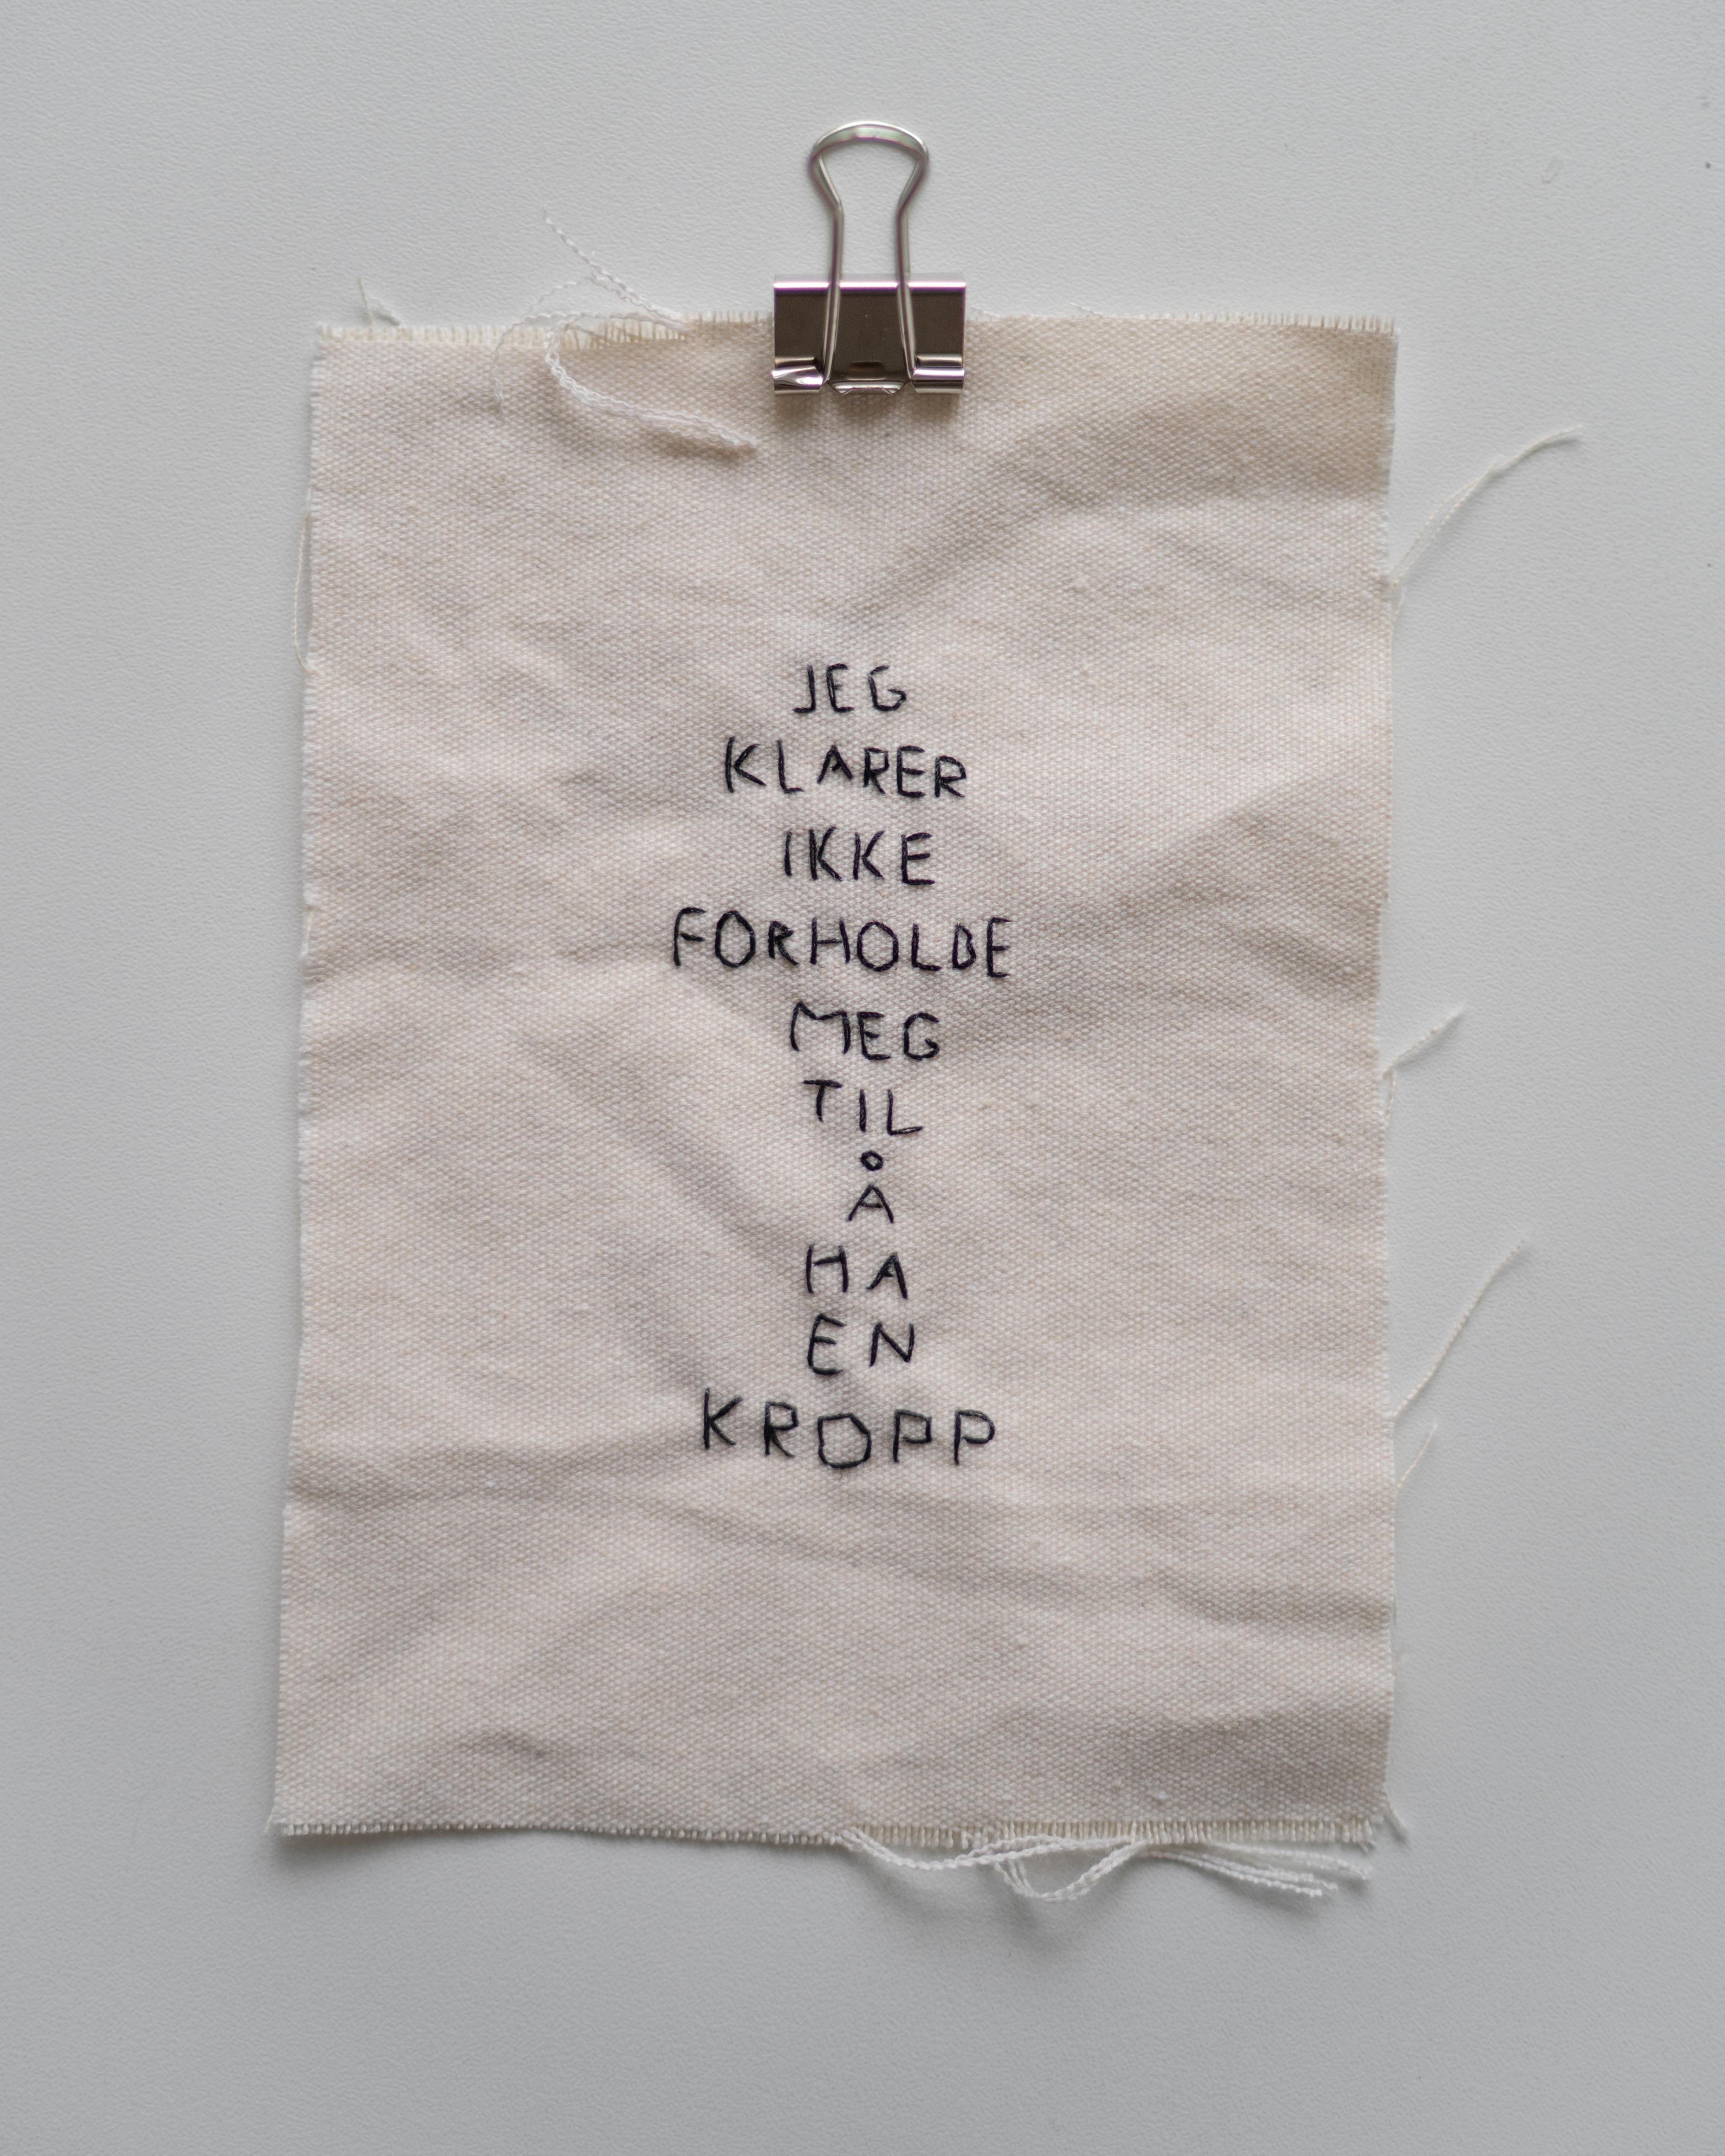 JEG
KLARER
IKKE
FORHOLDE
MEG
TIL
Å
HA
EN
KROPP